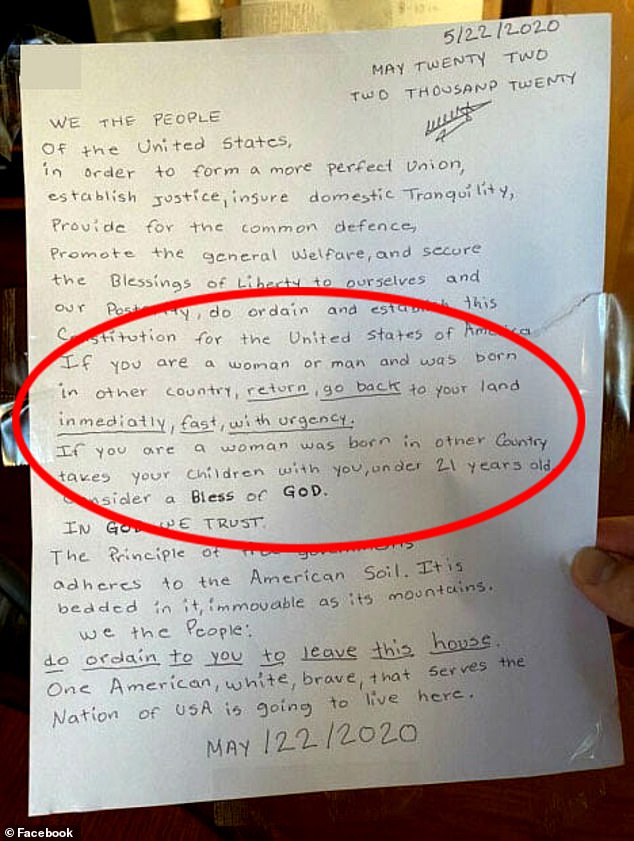 5/22/2020
MAY TWENTY TWO
TWO THOUSAND TWENTY
WE THE PEOPLE
Of the United States,
in order to form a more perfect Union,
establish Justice, insure domestic Tranquility,
Provide for the common defence,
Promote the general Welfare, and secure
the Blessings of Liberty to ourselves and
our Posterity, do ordain and establish this
Constitution for the United States of America
If you are a woman or man and was born
in other country, return, go back to your land
inmediatly, fast, with urgency.
If you are a woman was born in other Country
takes your children with you, under 21 years old
Consider a Bless of GOD.
IN GOD WE TRUST.
The Principle of free government
adheres to the American Soil. It is
bedded in it, immovable as its mountains.
we the People:
do ordain to you to leave this house.
One American, white, brave, that serves the
Nation of USA is going to live here.
MAY /22/2020
© Facebook